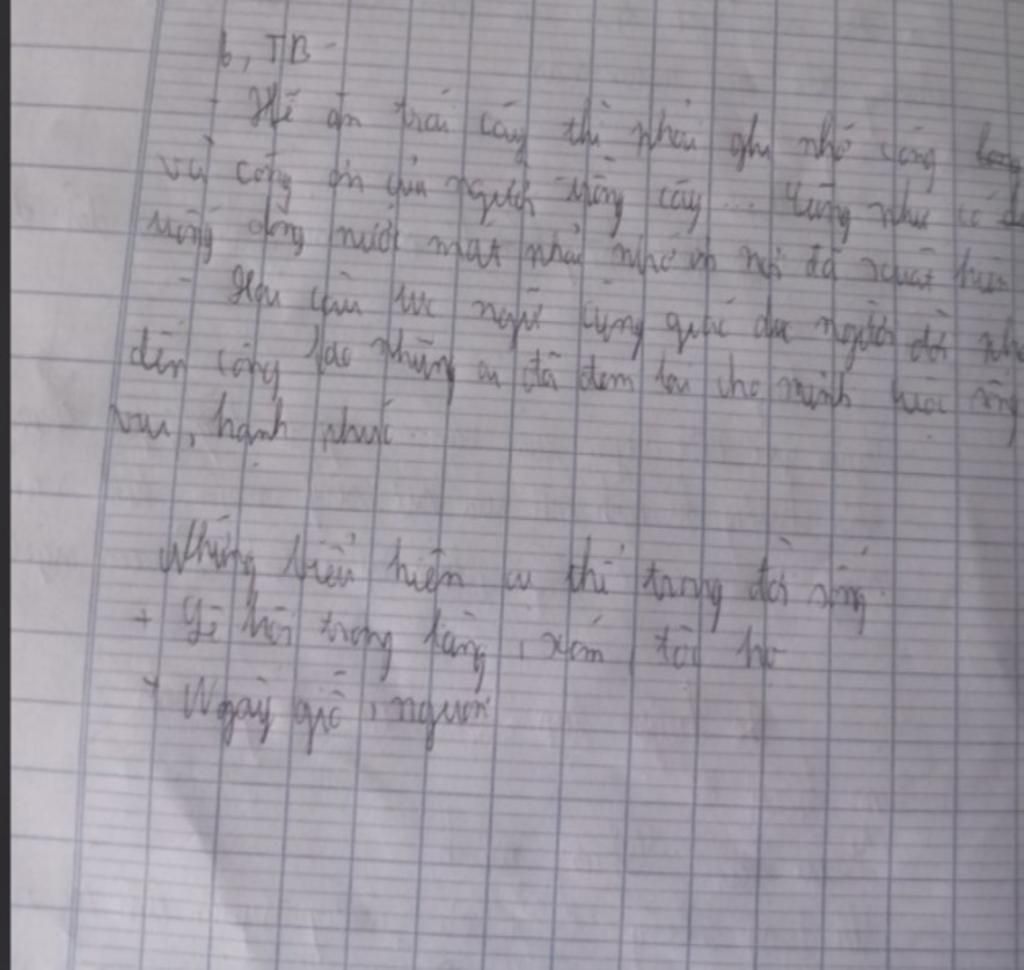 b, TB
- Khi ăn trái cây thì phải ghi nhớ công
và công ơn của người trồng cây ... cũng như có
uống dòng nước mát phải nhớ nơi đã xuất hiện
- Hai câu tục ngữ cùng giáo dục người đời
đến công lao những ai đã đem lại cho mình
vui, hạnh phúc
Những biểu hiện cụ thể trong đời sống
+ Lễ hội trong làng, xóm, tổ họ
+ Ngày giỗ, người